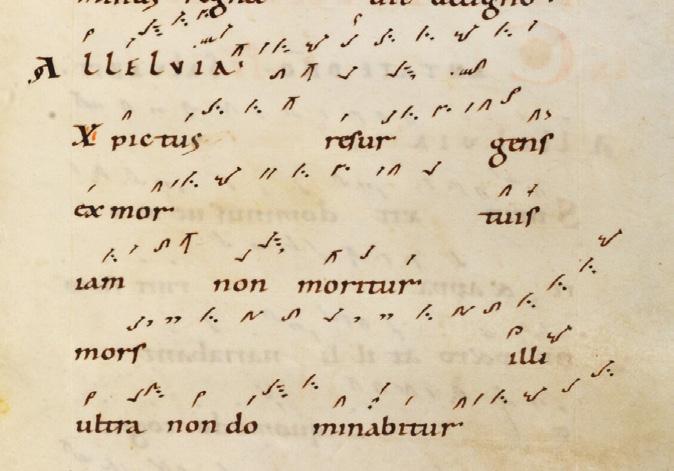 ALLELVIA
Xpictus resur gens
ex mor tuis
iam non moritur
mors illi
ultra non do minabitur